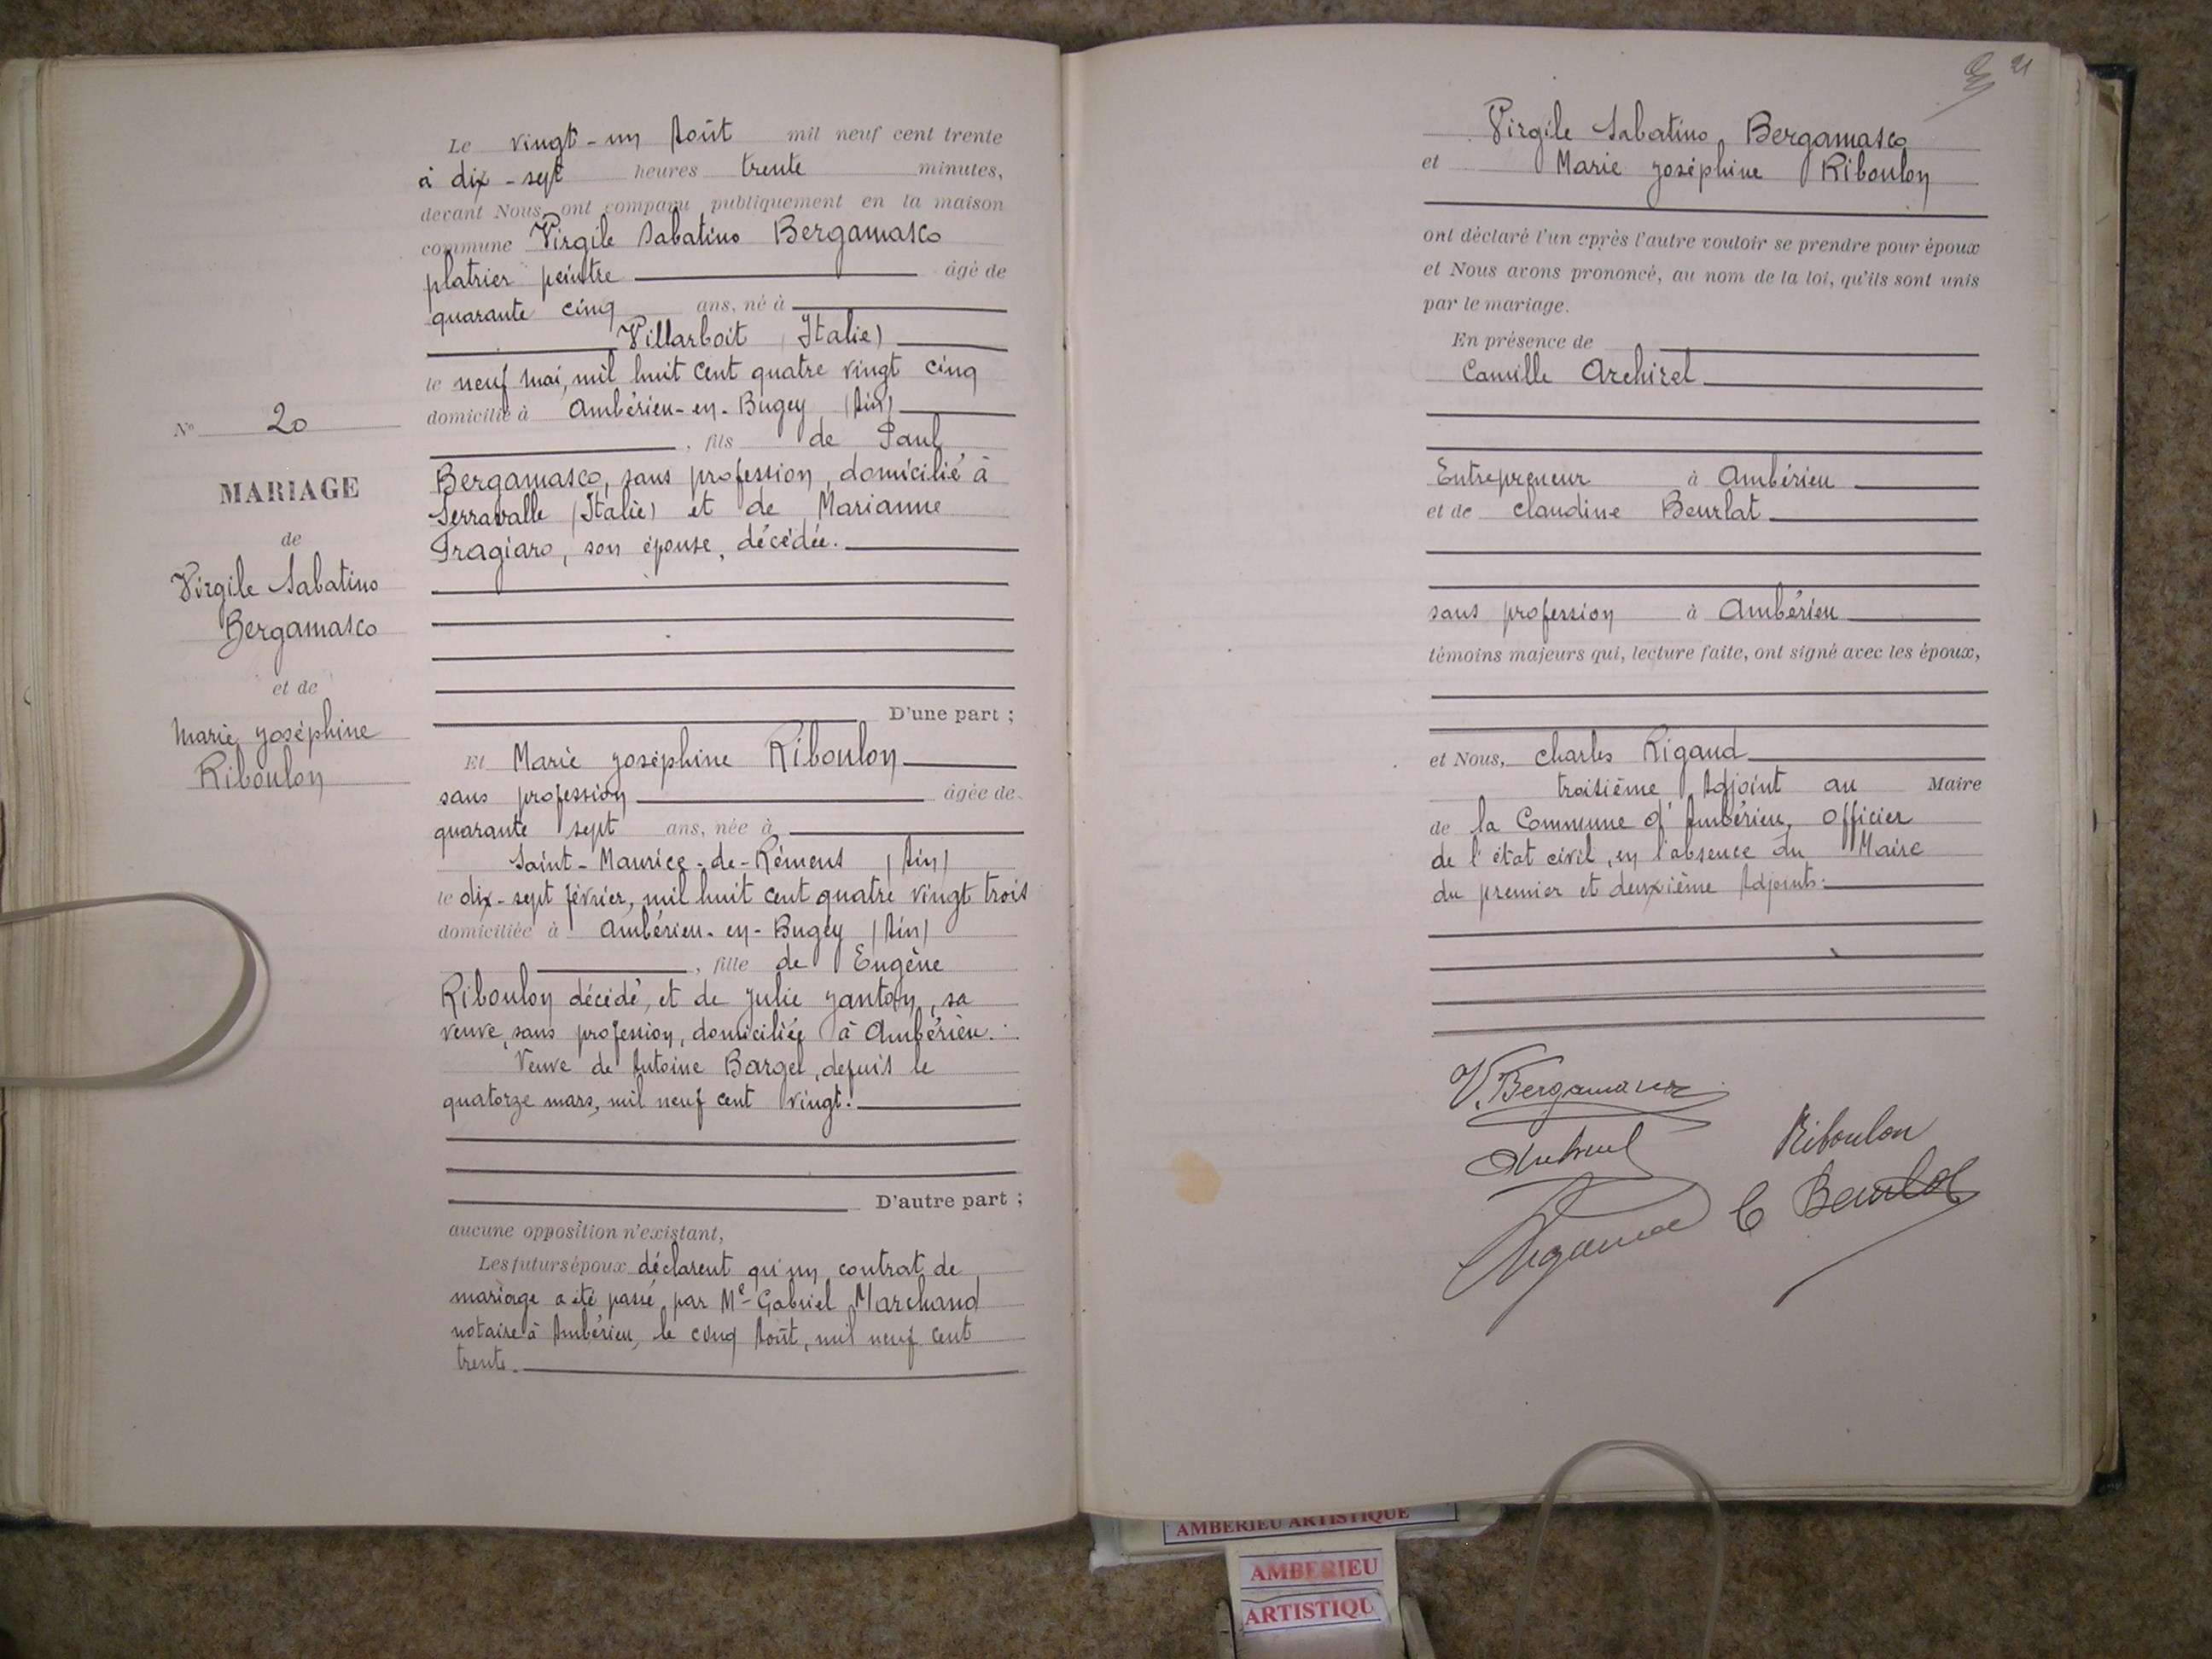 N° 20
MARIAGE
de
Virgile Sabatino
Bergamasco
et de
Marie Joséphine
Riboulon
Le vingt-un Août mil neuf cent trente
à dix-sept heures trente minutes,
devant Nous, ont comparu publiquement en la maison
commune Virgile Sabatino Bergamasco
platrier peintre âgé de
quarante cinq ans, né à
Villarboit (Italie)
le neuf mai, mil huit cent quatre vingt cinq
domicilié à Ambérieu-en-Bugey (Ain)
, fils de Paul
Bergamasco, sans profession, domicilié à
Serravalle (Italie) et de Marianne
Fragiaro, son épouse, décédée.
D'une part ;
Et Marie Joséphine Riboulon
sans profession âgée de
quarante sept ans, née à
Saint-Maurice-de-Rémens (Ain)
le dix-sept février, mil huit cent quatre vingt trois
domiciliée à Ambérieu-en-Bugey (Ain)
, fille de Eugène
Riboulon décédé, et de Julie Janton, sa
veuve, sans profession, domiciliée à Ambérieu.
Veuve de Antoine Barget, depuis le
quatorze mars, mil neuf cent vingt.
D'autre part ;
aucune opposition n'existant,
Les futurs époux déclarent qu'un contrat de
mariage a été passé par Me Gabriel Marchand
notaire à Ambérieu, le cinq Août, mil neuf cent
trente.
21
Virgile Sabatino Bergamasco
et Marie Joséphine Riboulon
ont déclaré l'un après l'autre vouloir se prendre pour époux
et Nous avons prononcé, au nom de la loi, qu'ils sont unis
par le mariage.
En présence de
Camille Archirel
Entrepreneur à Ambérieu
et de Claudine Beurlat
sans profession à Ambérieu
témoins majeurs qui, lecture faite, ont signé avec les époux,
et Nous, Charles Rigaud
troisième Adjoint au Maire
de la Commune d'Ambérieu, Officier
de l'état civil, en l'absence du Maire
du premier et deuxième Adjoints.
V. Bergamasco
Archirel
Riboulon
Rigaud
C Beurlat
AMBERIEU ARTISTIQUE
AMBERIEU
ARTISTIQU